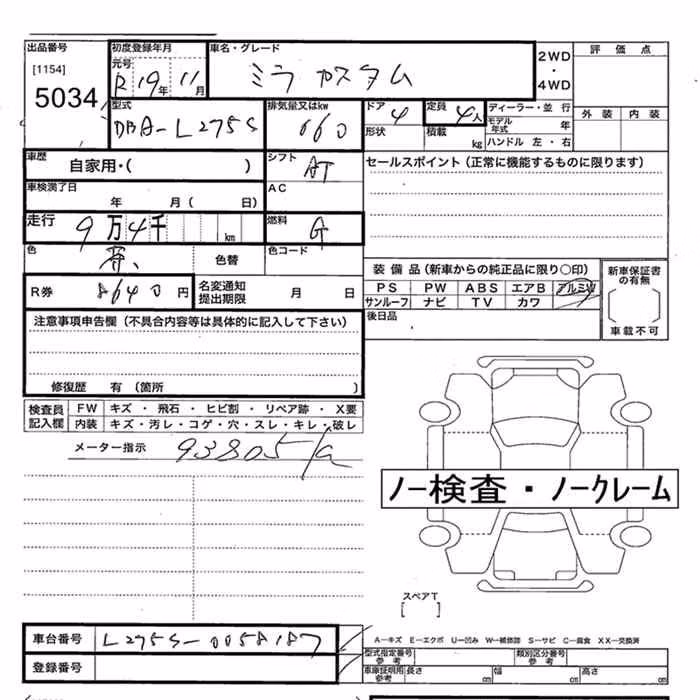 出品番号 初度登録年月 車名・グレード 2WD・4WD 評価点
[1154] 元号 R 19年 11月 ミラ カスタム
5034
型式 排気量又はkw ドア 4 定員 4人 ディーラー・並行 外装 内装
DBA-L275S 660 形状 積載 kg モデル年式 年
ハンドル 左・右
車歴 自家用・( ) シフト AT セールスポイント(正常に機能するものに限ります)
車検満了日 年 月( 日) AC
走行 9万4千 km 燃料 G
色 色替 色コード
装備品(新車からの純正品に限り○印) 新車保証書の有無
R券 8640円 名変通知提出期限 月 日 PS PW ABS エアB アルミW
サンルーフ ナビ TV カワ
後日品 車載不可
注意事項申告欄(不具合内容等は具体的に記入して下さい)
修復歴 有(箇所 )
検査員記入欄 FW キズ・飛石・ヒビ割・リペア跡・X要
内装 キズ・汚レ・コゲ・穴・スレ・キレ・破レ
メーター指示 93805
ノー検査・ノークレーム
スペアT
[ ]
車台番号 L275S-0058187 A-キズ E-エクボ U-凹み W-補修跡 S-サビ C-腐食 XX-交換済
型式指定番号 参考 類別区分番号 参考
登録番号 車庫証明用 参考 長さ cm 幅 cm 高さ cm